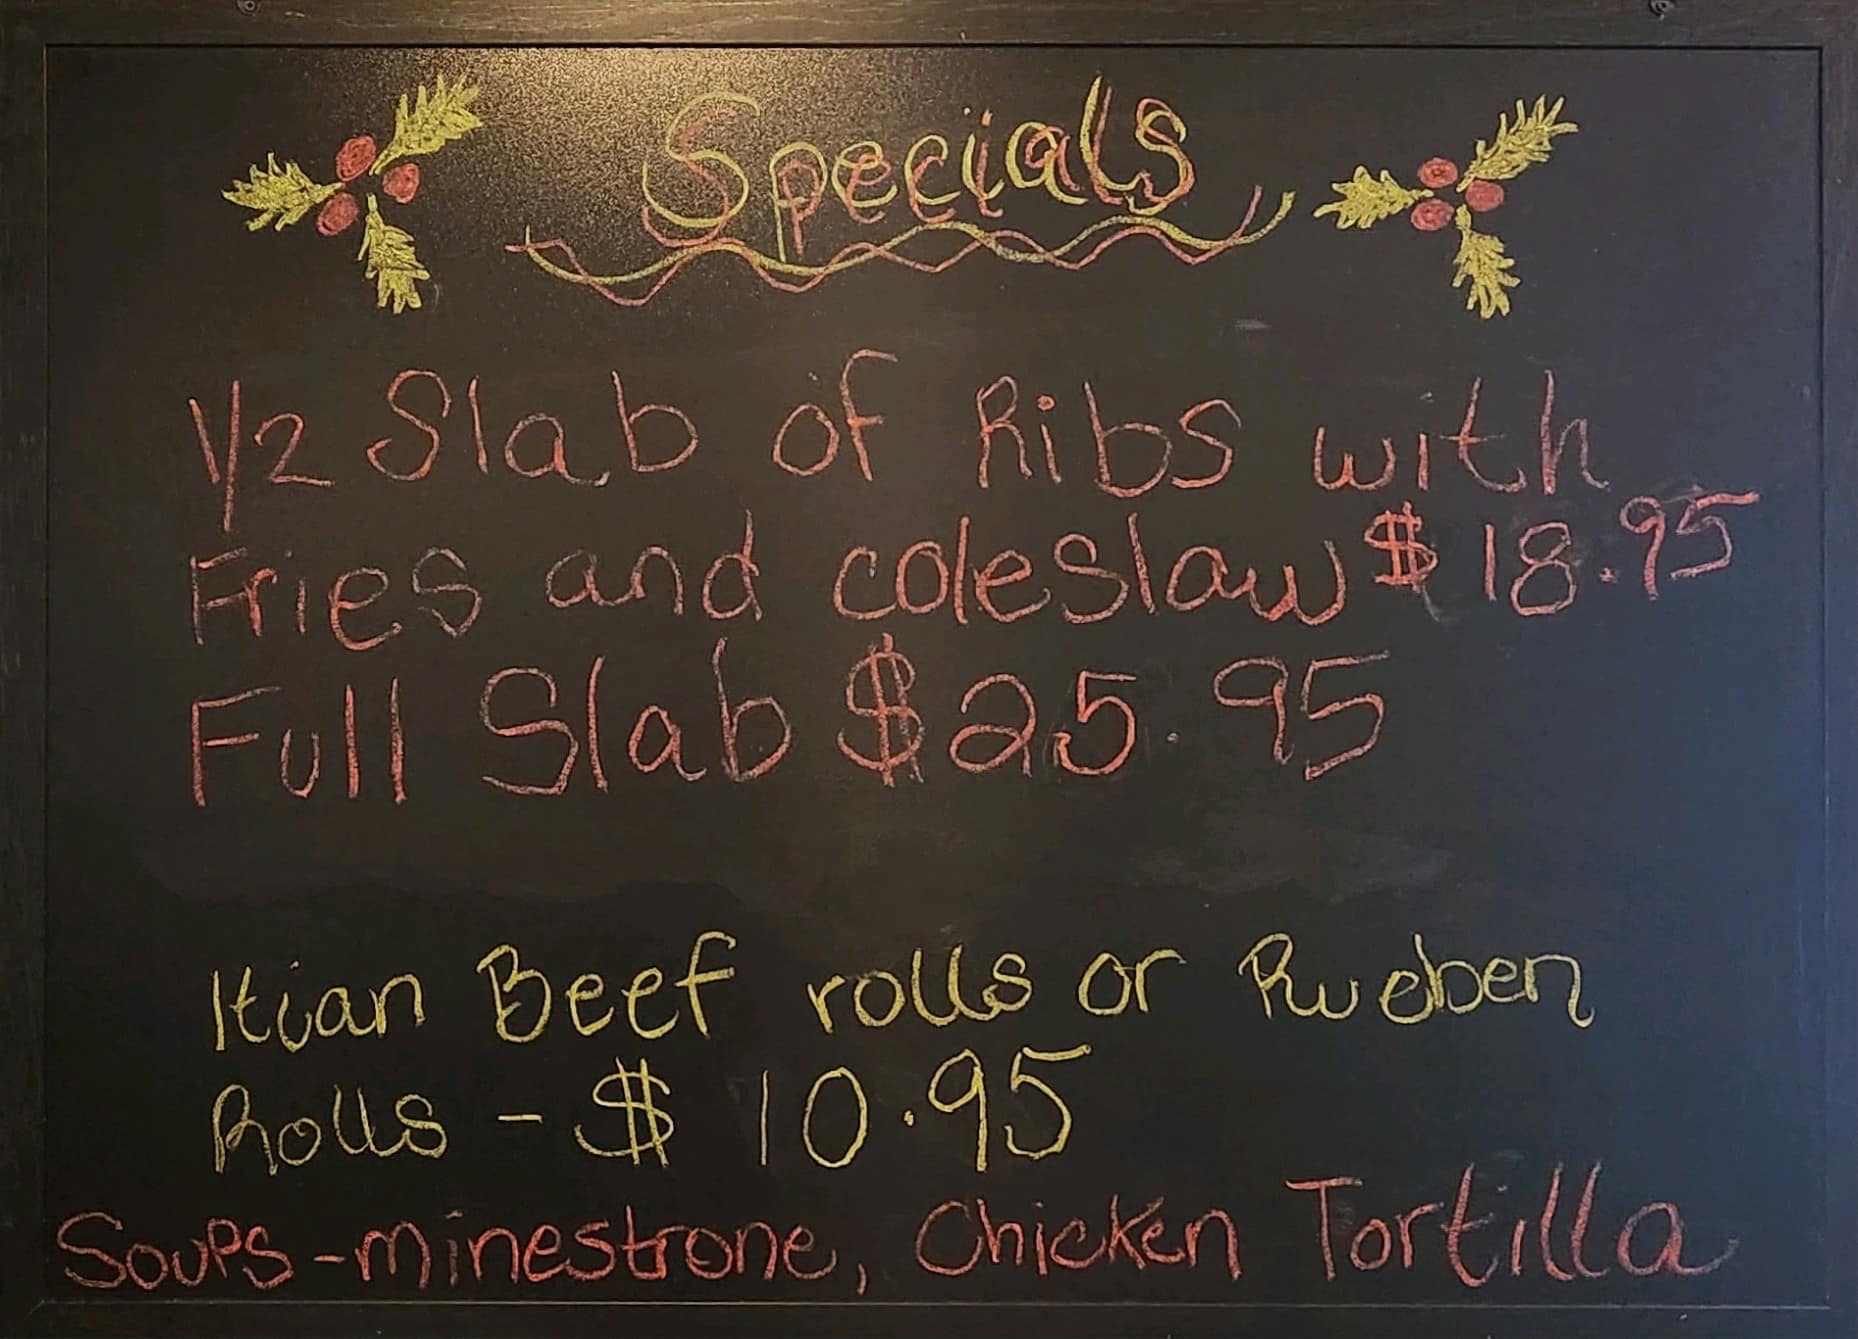 Specials
1/2 Slab of Ribs with
Fries and coleslaw $18.95
Full Slab $25.95
Itian Beef rolls or Rueben
Rolls - $10.95
Soups - minestrone, Chicken Tortilla